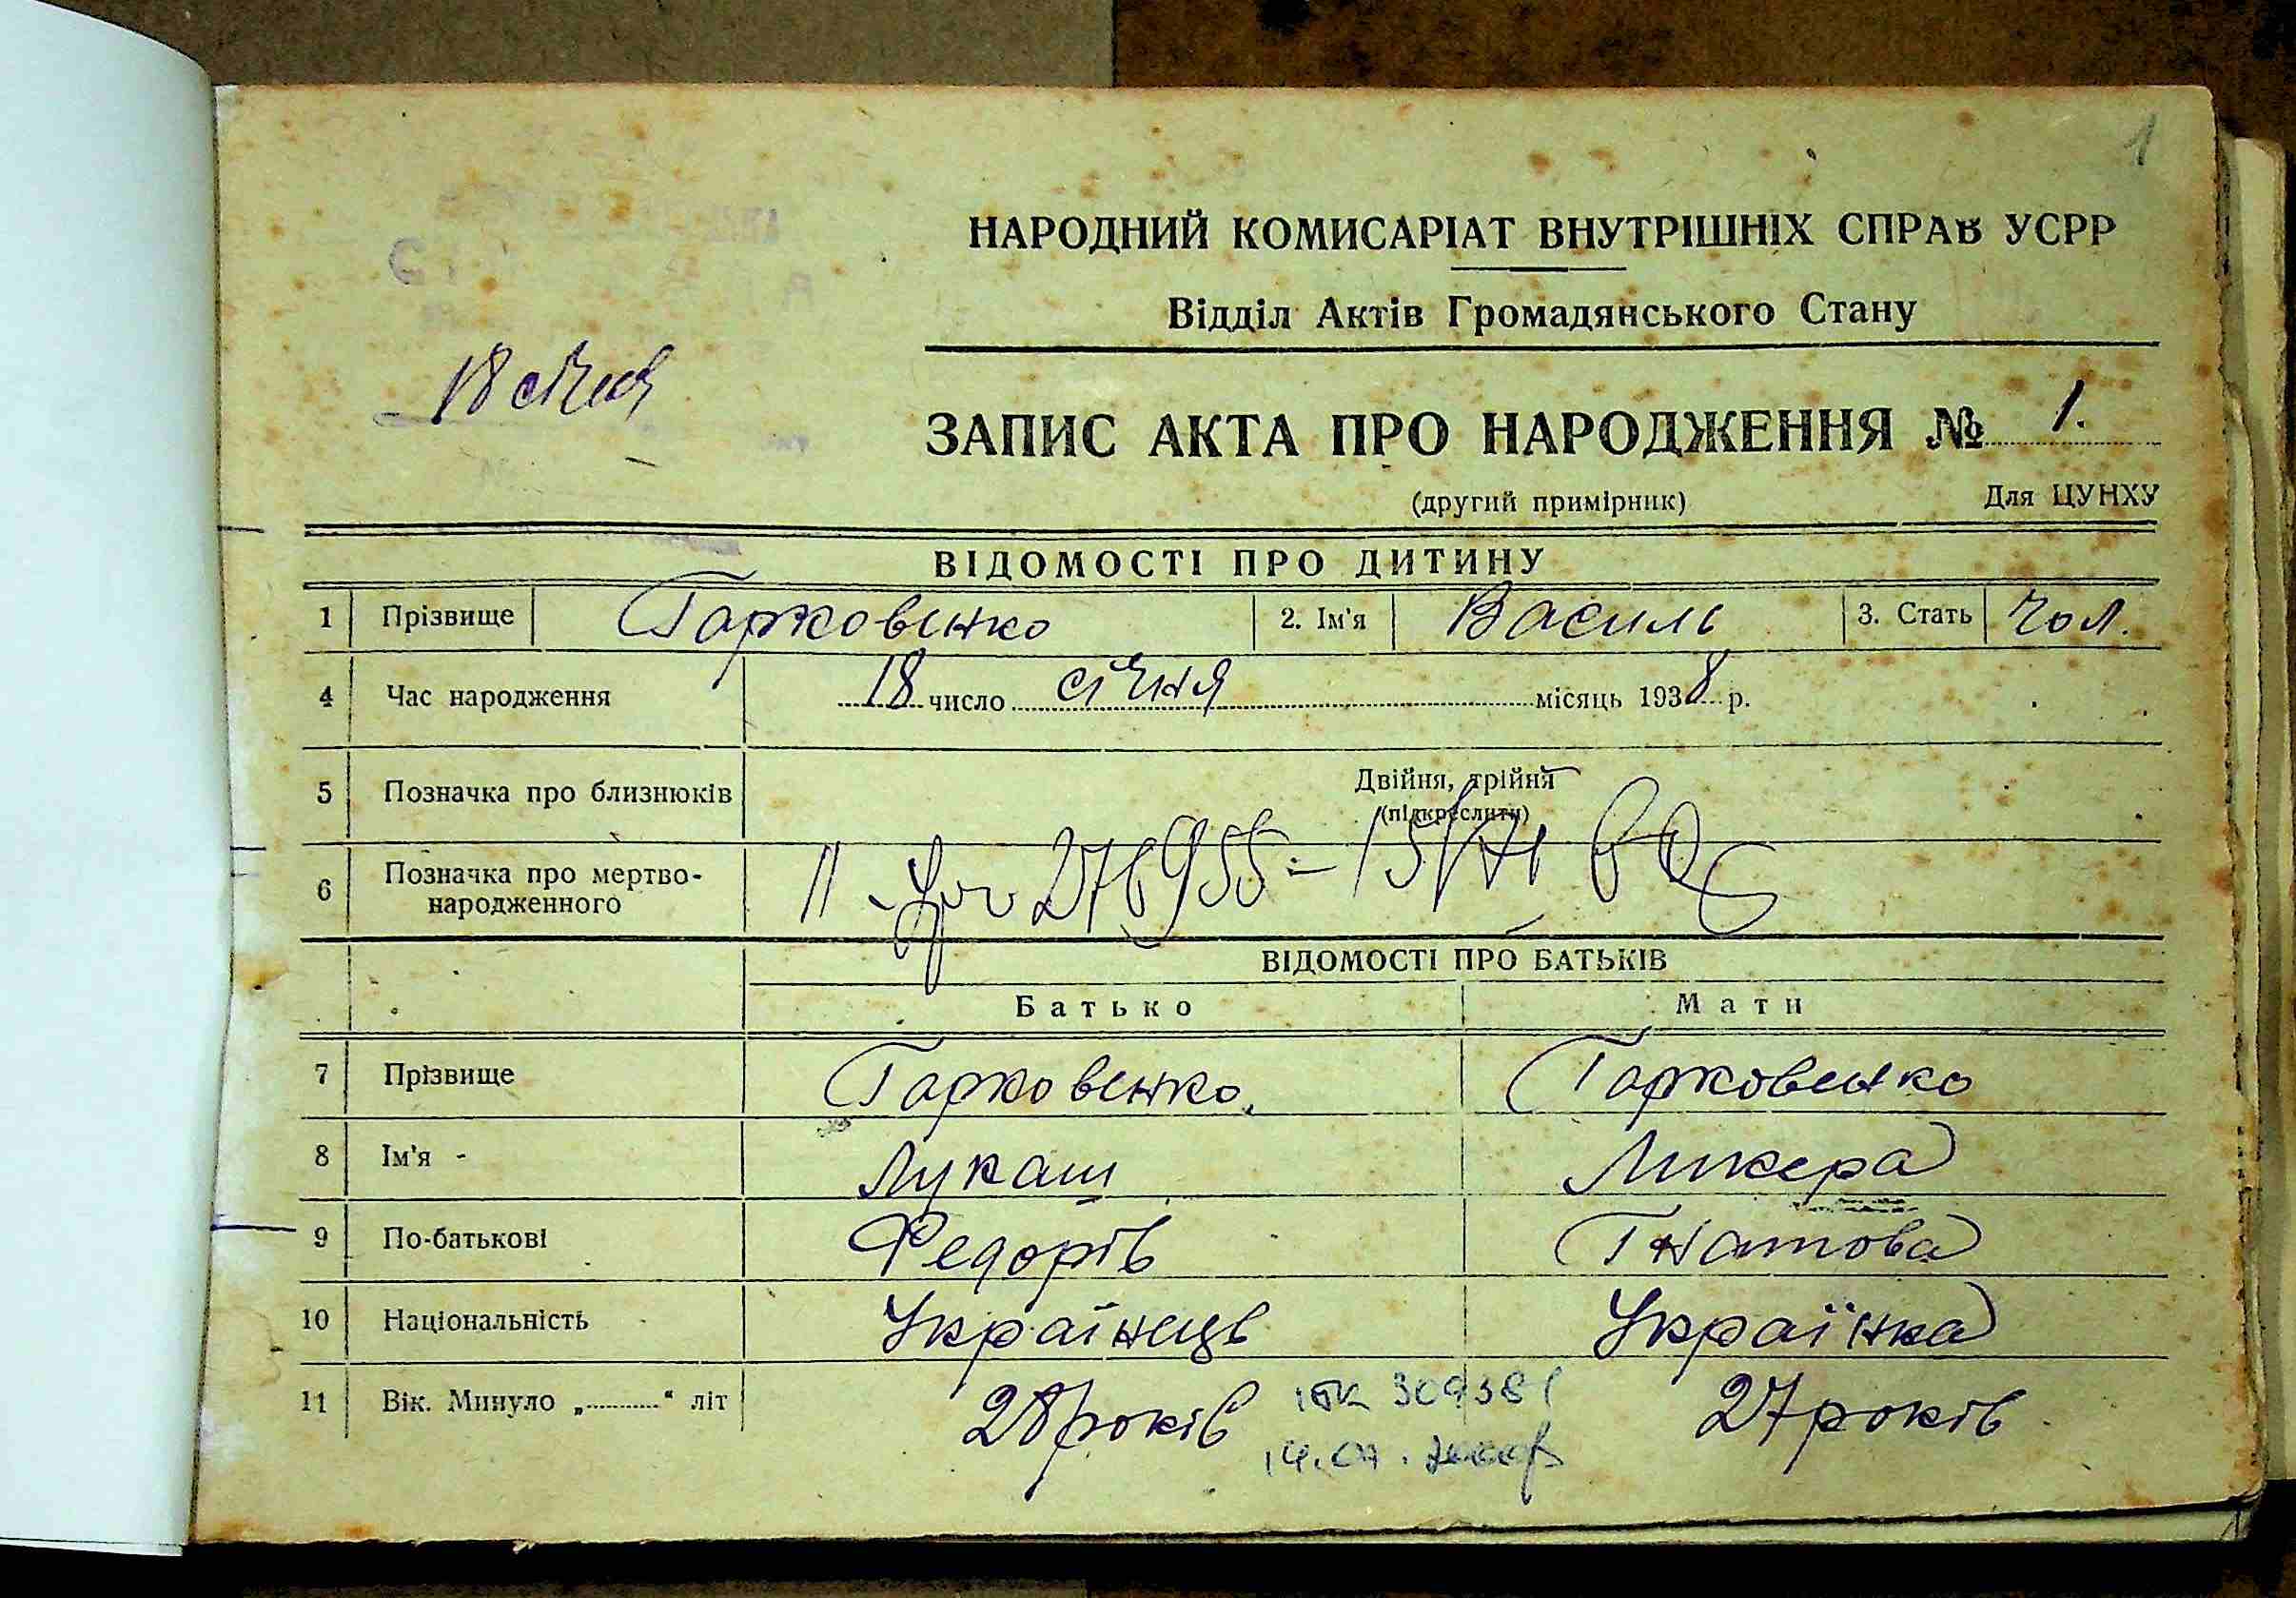 1
НАРОДНИЙ КОМИСАРІАТ ВНУТРІШНІХ СПРАВ УСРР
Відділ Актів Громадянського Стану
18 січня
ЗАПИС АКТА ПРО НАРОДЖЕННЯ № 1.
(другий примірник) Для ЦУНХУ
ВІДОМОСТІ ПРО ДИТИНУ
1 Прізвище Гарковенко 2. Ім'я Василь 3. Стать чол.
4 Час народження 18 число січня місяць 1938 р.
5 Позначка про близнюків Двійня, трійня
(підкреслити)
6 Позначка про мертво-
народженного
276955
ВІДОМОСТІ ПРО БАТЬКІВ
Батько Мати
7 Прізвище Гарковенко. Гарковенко
8 Ім'я - Лукаш Ликера
9 По-батькові Федорів Гнатова
10 Національність Українець Українка
11 Вік. Минуло „ “ літ 28 років 27 років
309381